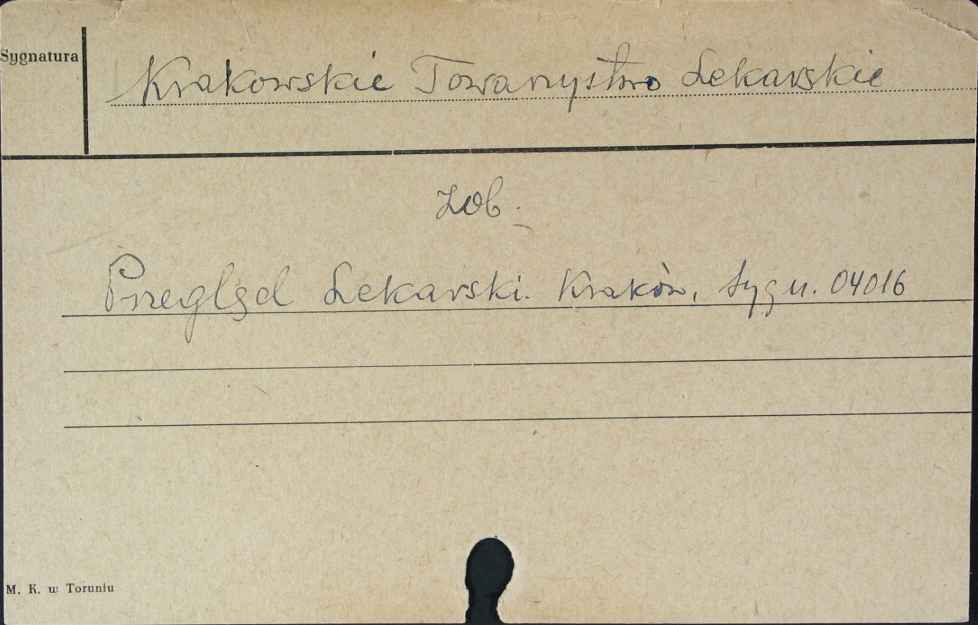 Sygnatura
Krakowskie Towarzystwo Lekarskie
zob.
Przegląd Lekarski. Kraków, Sygn. 04016
M. K. w Toruniu